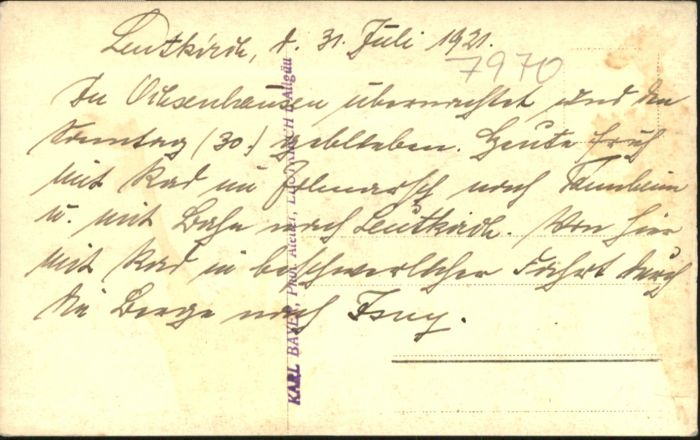 Leutkirch, d. 31. Juli 1921.
7970
In Ochsenhausen übernachtet und den
Sonntag (30.) geblieben. Heute früh
mit Rad im nach Tannheim
u. mit Bahn nach Leutkirch. Von hier
mit Rad in beschwerlicher Fahrt durch
die Berge nach Isny.
KARL BAYER, Phot. Atelier, LEUTKIRCH i. Allgäu